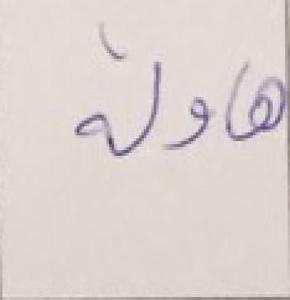 هاولة